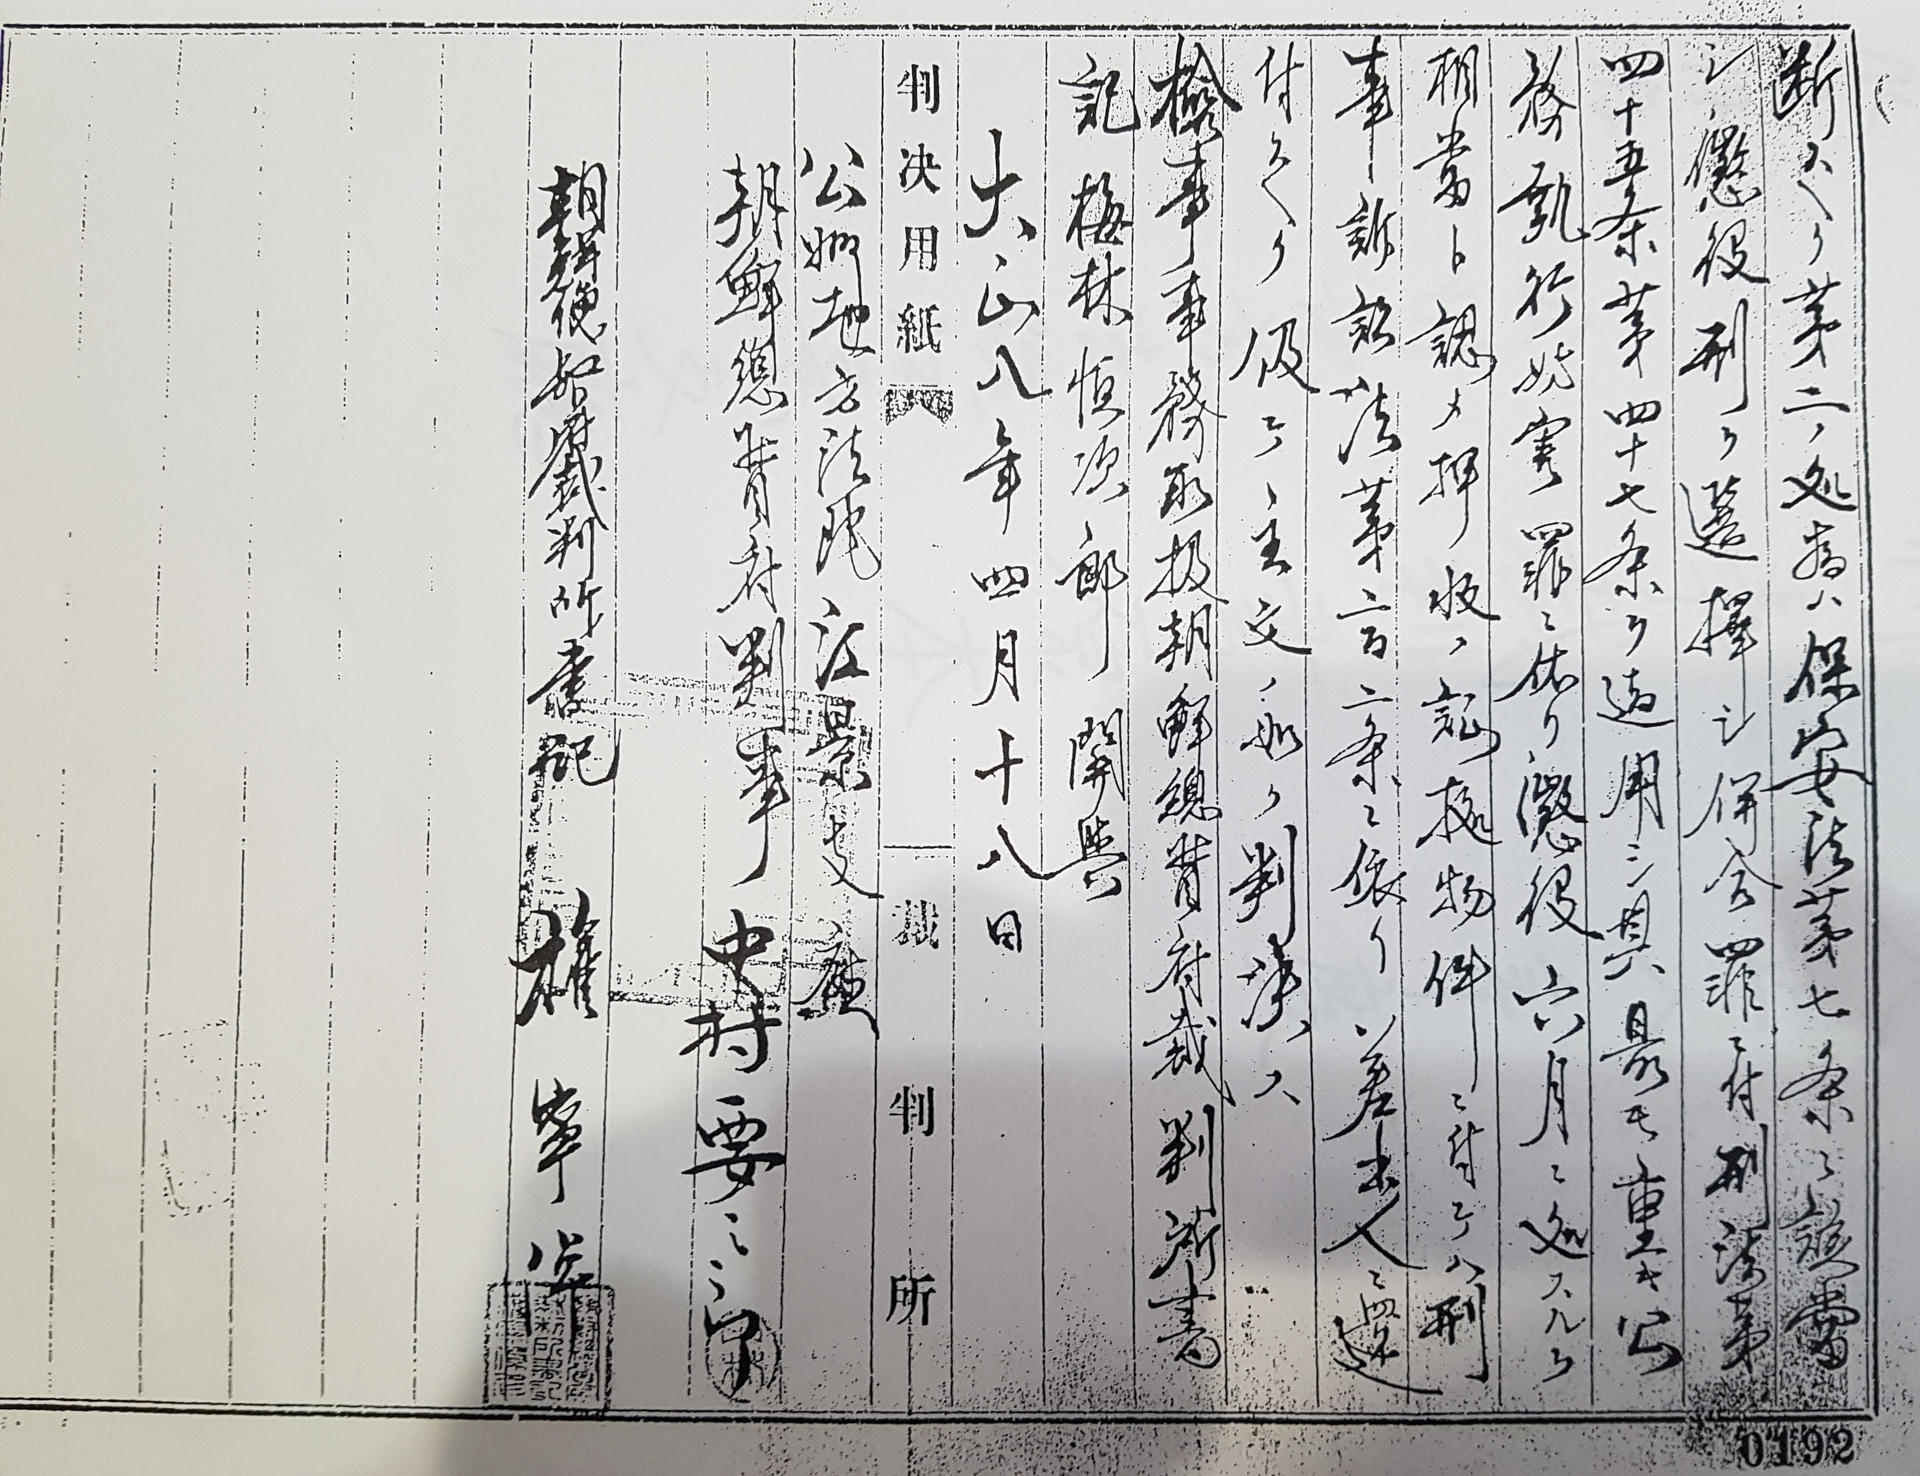 断スヘク第二ノ処為ハ保安法第七条ニ該当
シ懲役刑ヲ選択シ併合罪ニ付刑法第
四十五条第四十七条ヲ適用シ其最モ重キ公
務執行妨害罪ニ依リ懲役六月ニ処スルヲ
相当ト認メ押収ノ証拠物件ニ付テハ刑
事訴訟法第二百二条ニ依リ差出人ニ還
付スヘク仍テ主文ノ如ク判決ス
検事事務取扱朝鮮總督府裁判所書
記梅林恒次郎関与
大正八年四月十八日
判决用紙 裁判所
公州地方法院江景支廳
朝鮮總督府判事 中村要
朝鮮總督府裁判所書記 権寧
0192